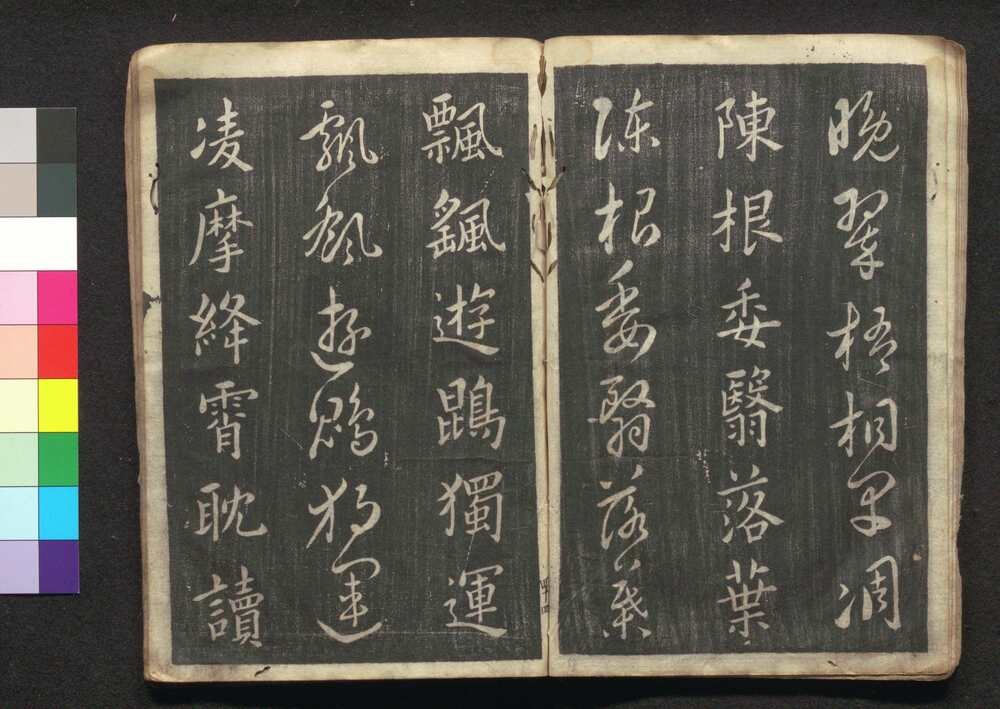 晚翠梧桐早凋
陳根委翳落葉
陳根委翳落葉
飄颻遊鵾獨運
飄颻遊鵾獨運
凌摩絳霄耽讀